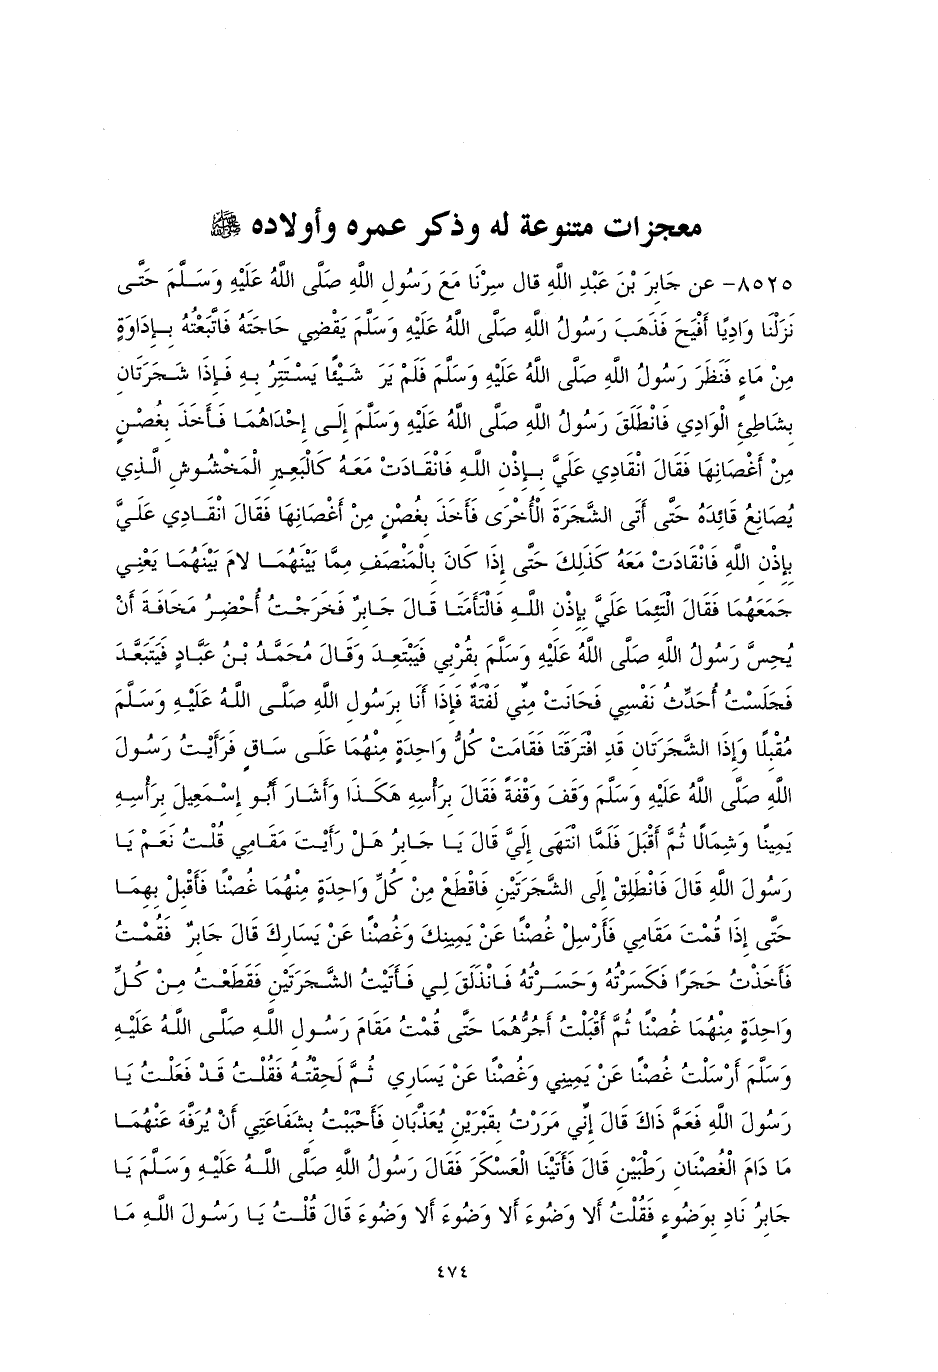 معجزات متنوعة له وذكر عمره وأولاده ﷺ
٨٥٢٥- عن جَابِرَ بْنَ عَبْدِ اللَّهِ قال سِرْنَا مَعَ رَسُولِ اللَّهِ صَلَّى اللَّهُ عَلَيْهِ وَسَلَّمَ حَتَّى
نَزَلْنَا وَادِيًا أَفْيَحَ فَذَهَبَ رَسُولُ اللَّهِ صَلَّى اللَّهُ عَلَيْهِ وَسَلَّمَ يَقْضِي حَاجَتَهُ فَاتَّبَعْتُهُ بِإِدَاوَةٍ
مِنْ مَاءٍ فَنَظَرَ رَسُولُ اللَّهِ صَلَّى اللَّهُ عَلَيْهِ وَسَلَّمَ فَلَمْ يَرَ شَيْئًا يَسْتَتِرُ بِهِ فَإِذَا شَجَرَتَانِ
بِشَاطِئِ الْوَادِي فَانْطَلَقَ رَسُولُ اللَّهِ صَلَّى اللَّهُ عَلَيْهِ وَسَلَّمَ إِلَى إِحْدَاهُمَا فَأَخَذَ بِغُصْنٍ
مِنْ أَغْصَانِهَا فَقَالَ انْقَادِي عَلَيَّ بِإِذْنِ اللَّهِ فَانْقَادَتْ مَعَهُ كَالْبَعِيرِ الْمَخْشُوشِ الَّذِي
يُصَانِعُ قَائِدَهُ حَتَّى أَتَى الشَّجَرَةَ الْأُخْرَى فَأَخَذَ بِغُصْنٍ مِنْ أَغْصَانِهَا فَقَالَ انْقَادِي عَلَيَّ
بِإِذْنِ اللَّهِ فَانْقَادَتْ مَعَهُ كَذَلِكَ حَتَّى إِذَا كَانَ بِالْمَنْصَفِ مِمَّا بَيْنَهُمَا لَامَ بَيْنَهُمَا يَعْنِي
جَمَعَهُمَا فَقَالَ الْتَئِمَا عَلَيَّ بِإِذْنِ اللَّهِ فَالْتَأَمَتَا قَالَ جَابِرٌ فَخَرَجْتُ أُحْضِرُ مَخَافَةَ أَنْ
يُحِسَّ رَسُولُ اللَّهِ صَلَّى اللَّهُ عَلَيْهِ وَسَلَّمَ بِقُرْبِي فَيَبْتَعِدَ وَقَالَ مُحَمَّدُ بْنُ عَبَّادٍ فَيَتَبَعَّدَ
فَجَلَسْتُ أُحَدِّثُ نَفْسِي فَحَانَتْ مِنِّي لَفْتَةٌ فَإِذَا أَنَا بِرَسُولِ اللَّهِ صَلَّى اللَّهُ عَلَيْهِ وَسَلَّمَ
مُقْبِلًا وَإِذَا الشَّجَرَتَانِ قَدِ افْتَرَقَتَا فَقَامَتْ كُلُّ وَاحِدَةٍ مِنْهُمَا عَلَى سَاقٍ فَرَأَيْتُ رَسُولَ
اللَّهِ صَلَّى اللَّهُ عَلَيْهِ وَسَلَّمَ وَقَفَ وَقْفَةً فَقَالَ بِرَأْسِهِ هَكَذَا وَأَشَارَ أَبُو إِسْمَعِيلَ بِرَأْسِهِ
يَمِينًا وَشِمَالًا ثُمَّ أَقْبَلَ فَلَمَّا انْتَهَى إِلَيَّ قَالَ يَا جَابِرُ هَلْ رَأَيْتَ مَقَامِي قُلْتُ نَعَمْ يَا
رَسُولَ اللَّهِ قَالَ فَانْطَلِقْ إِلَى الشَّجَرَتَيْنِ فَاقْطَعْ مِنْ كُلِّ وَاحِدَةٍ مِنْهُمَا غُصْنًا فَأَقْبِلْ بِهِمَا
حَتَّى إِذَا قُمْتَ مَقَامِي فَأَرْسِلْ غُصْنًا عَنْ يَمِينِكَ وَغُصْنًا عَنْ يَسَارِكَ قَالَ جَابِرٌ فَقُمْتُ
فَأَخَذْتُ حَجَرًا فَكَسَرْتُهُ وَحَسَرْتُهُ فَانْذَلَقَ لِي فَأَتَيْتُ الشَّجَرَتَيْنِ فَقَطَعْتُ مِنْ كُلِّ
وَاحِدَةٍ مِنْهُمَا غُصْنًا ثُمَّ أَقْبَلْتُ أَجُرُّهُمَا حَتَّى قُمْتُ مَقَامَ رَسُولِ اللَّهِ صَلَّى اللَّهُ عَلَيْهِ
وَسَلَّمَ أَرْسَلْتُ غُصْنًا عَنْ يَمِينِي وَغُصْنًا عَنْ يَسَارِي ثُمَّ لَحِقْتُهُ فَقُلْتُ قَدْ فَعَلْتُ يَا
رَسُولَ اللَّهِ فَعَمَّ ذَاكَ قَالَ إِنِّي مَرَرْتُ بِقَبْرَيْنِ يُعَذَّبَانِ فَأَحْبَبْتُ بِشَفَاعَتِي أَنْ يُرَفَّهَ عَنْهُمَا
مَا دَامَ الْغُصْنَانِ رَطْبَيْنِ قَالَ فَأَتَيْنَا الْعَسْكَرَ فَقَالَ رَسُولُ اللَّهِ صَلَّى اللَّهُ عَلَيْهِ وَسَلَّمَ يَا
جَابِرُ نَادِ بِوَضُوءٍ فَقُلْتُ أَلَا وَضُوءَ أَلَا وَضُوءَ أَلَا وَضُوءَ قَالَ قُلْتُ يَا رَسُولَ اللَّهِ مَا
٤٧٤